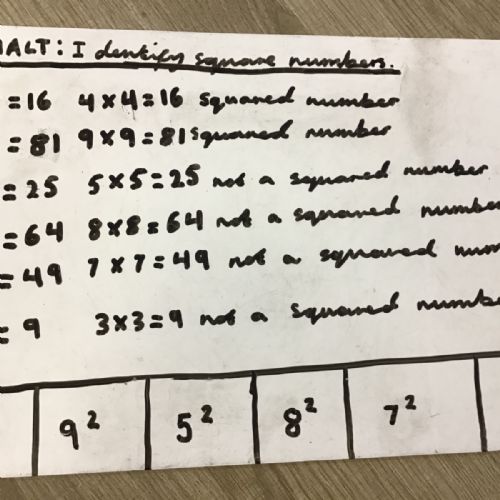 HALT: I dentify square numbers.
=16 4×4=16 squared number
=81 9×9=81 squared number
=25 5×5=25 not a squared number
=64 8×8=64 not a squared number
=49 7×7=49 not a squared num
=9 3×3=9 not a squared numbe
9² 5² 8² 7²